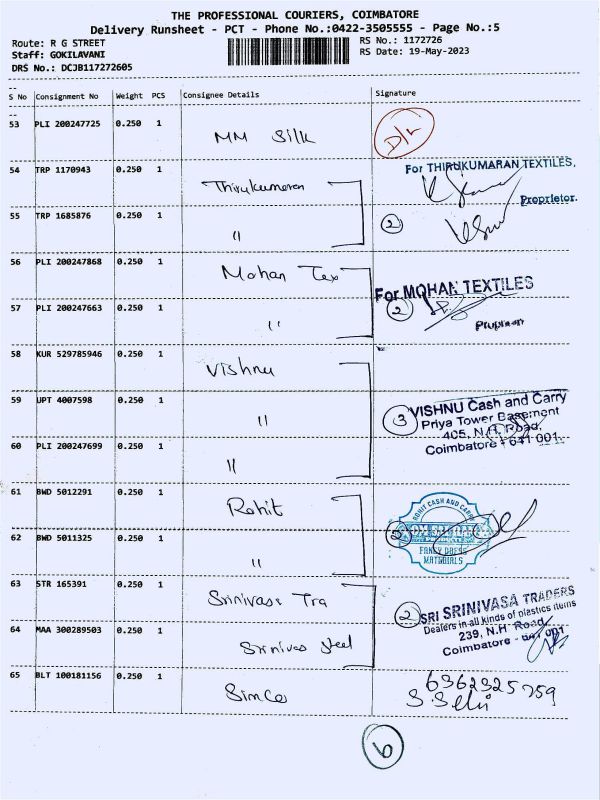 THE PROFESSIONAL COURIERS, COIMBATORE
Delivery Runsheet - PCT - Phone No.:0422-3505555 - Page No.:5
Route: R G STREET
RS No.: 1172726
Staff: GOKILAVANI
RS Date: 19-May-2023
DRS No.: DCJB117272605
S No Consignment No Weight PCS Consignee Details Signature
53 PLI 200247725 0.250 1 MM Silk D/L
54 TRP 1170943 0.250 1 Thirukumaran For THIRUKUMARAN TEXTILES,
Proprietor.
55 TRP 1685876 0.250 1 " 2
56 PLI 200247868 0.250 1 Mohan Tex For MOHAN TEXTILES
57 PLI 200247663 0.250 1 " 2
58 KUR 529785946 0.250 1 Vishnu
59 UPT 4007598 0.250 1 " 3 VISHNU Cash and Carry
Priya Tower Basement
405, N.H. Road,
60 PLI 200247699 0.250 1 " Coimbatore - 641 001.
61 BWD 5012291 0.250 1 Rohit ROHIT CASH AND CARRY
62 BWD 5011325 0.250 1 " 2
FANCY DRESS
MATERIALS
63 STR 165391 0.250 1 Srinivasa Tra 2 SRI SRINIVASA TRADERS
Dealers in all kinds of plastics items
239, N.H. Road,
64 MAA 300289503 0.250 1 Srinivas Steel Coimbatore - 641 001
65 BLT 100181156 0.250 1 Simco 6362325759
S. Selvi
6